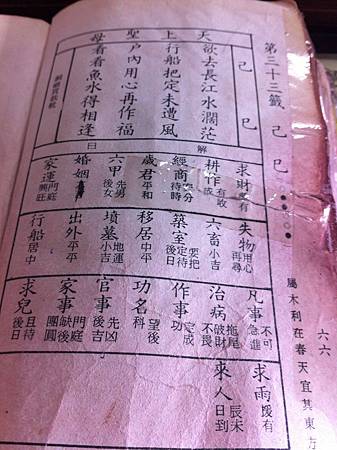 六六
屬木利在春天宜其東方
第三十三籤 己巳
天上聖母
己巳
欲去長江水濶茫
行船把定未遭風
戶內用心再作福
看看魚水得相逢
解曰
求財 有
耕作 有收成
經商 待時
歲君 平和
六甲 先男後女
婚姻
家運 門庭興旺
失物 用心再尋
六畜 小吉
築室 要把定待後日
移居 中平
墳墓 地運小吉
出外 平平
行船 居中
凡事 不可急進
治病 拖尾破財不畏
作事 定成功
功名 望後科
官事 先凶後吉
家事 門庭缺後團圓
求兒 且待後日
求雨 有
來人 辰未日到